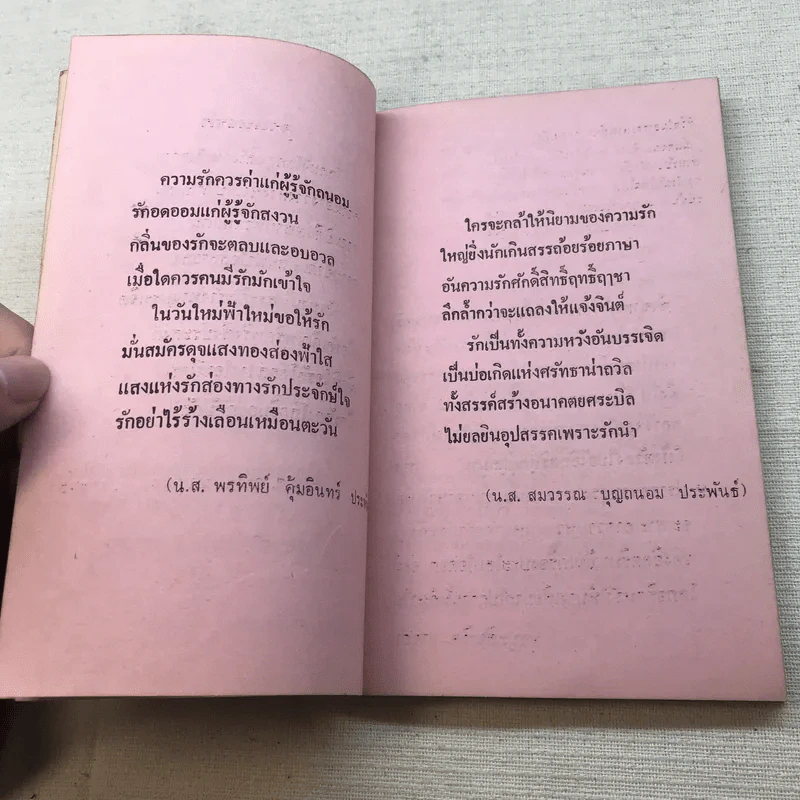 ความรักควรค่าแก่ผู้รู้จักถนอม
รักอดออมแก่ผู้รู้จักสงวน
กลิ่นของรักจะตลบและอบอวล
เมื่อใดควรคนมีรักมักเข้าใจ
ในวันใหม่ฟ้าใหม่ขอให้รัก
มั่นสมัครดุจแสงทองส่องฟ้าใส
แสงแห่งรักส่องทางรักประจักษ์ใจ
รักอย่าไร้ร้างเลือนเหมือนตะวัน
(น.ส. พรทิพย์ คุ้มอินทร์
ใครจะกล้าให้นิยามของความรัก
ใหญ่ยิ่งนักเกินสรรถ้อยร้อยภาษา
อันความรักศักดิ์สิทธิ์ฤทธิ์ฤาชา
ลึกล้ำกว่าจะแถลงให้แจ้งจินต์
รักเป็นทั้งความหวังอันบรรเจิด
เป็นบ่อเกิดแห่งศรัทธาน่าถวิล
ทั้งสรรค์สร้างอนาคตยศระบิล
ไม่ยลยินอุปสรรคเพราะรักนำ
(น.ส. สมวรรณ บุญถนอม ประพันธ์)